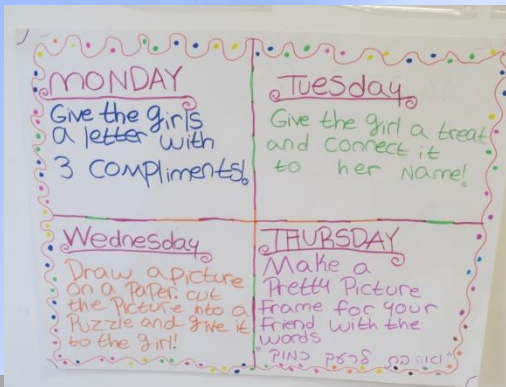 MONDAY
Give the girls
a letter with
3 compliments!
Tuesday
Give the girl a treat
and connect it
to her Name!
Wednesday
Draw a picture
on a paper. cut
the picture into a
Puzzle and give it
to the girl!
THURSDAY
Make a
Pretty Picture
Frame for your
Friend with the
words
ואהבת לרעך כמוך